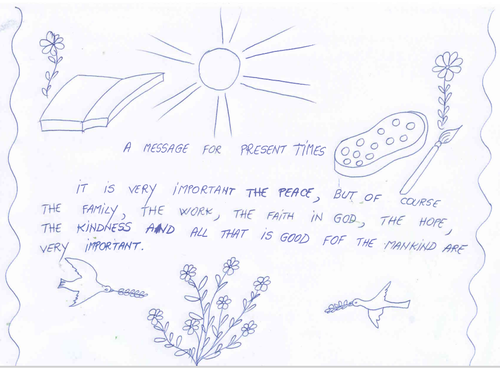 A MESSAGE FOR PRESENT TIMES
IT IS VERY IMPORTANT THE PEACE, BUT OF COURSE
THE FAMILY, THE WORK, THE FAITH IN GOD, THE HOPE,
THE KINDNESS AND ALL THAT IS GOOD FOF THE MANKIND ARE
VERY IMPORTANT.